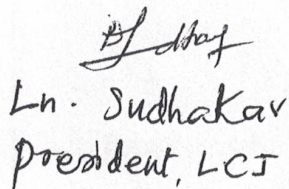 Ln. Sudhakar
President, LCI